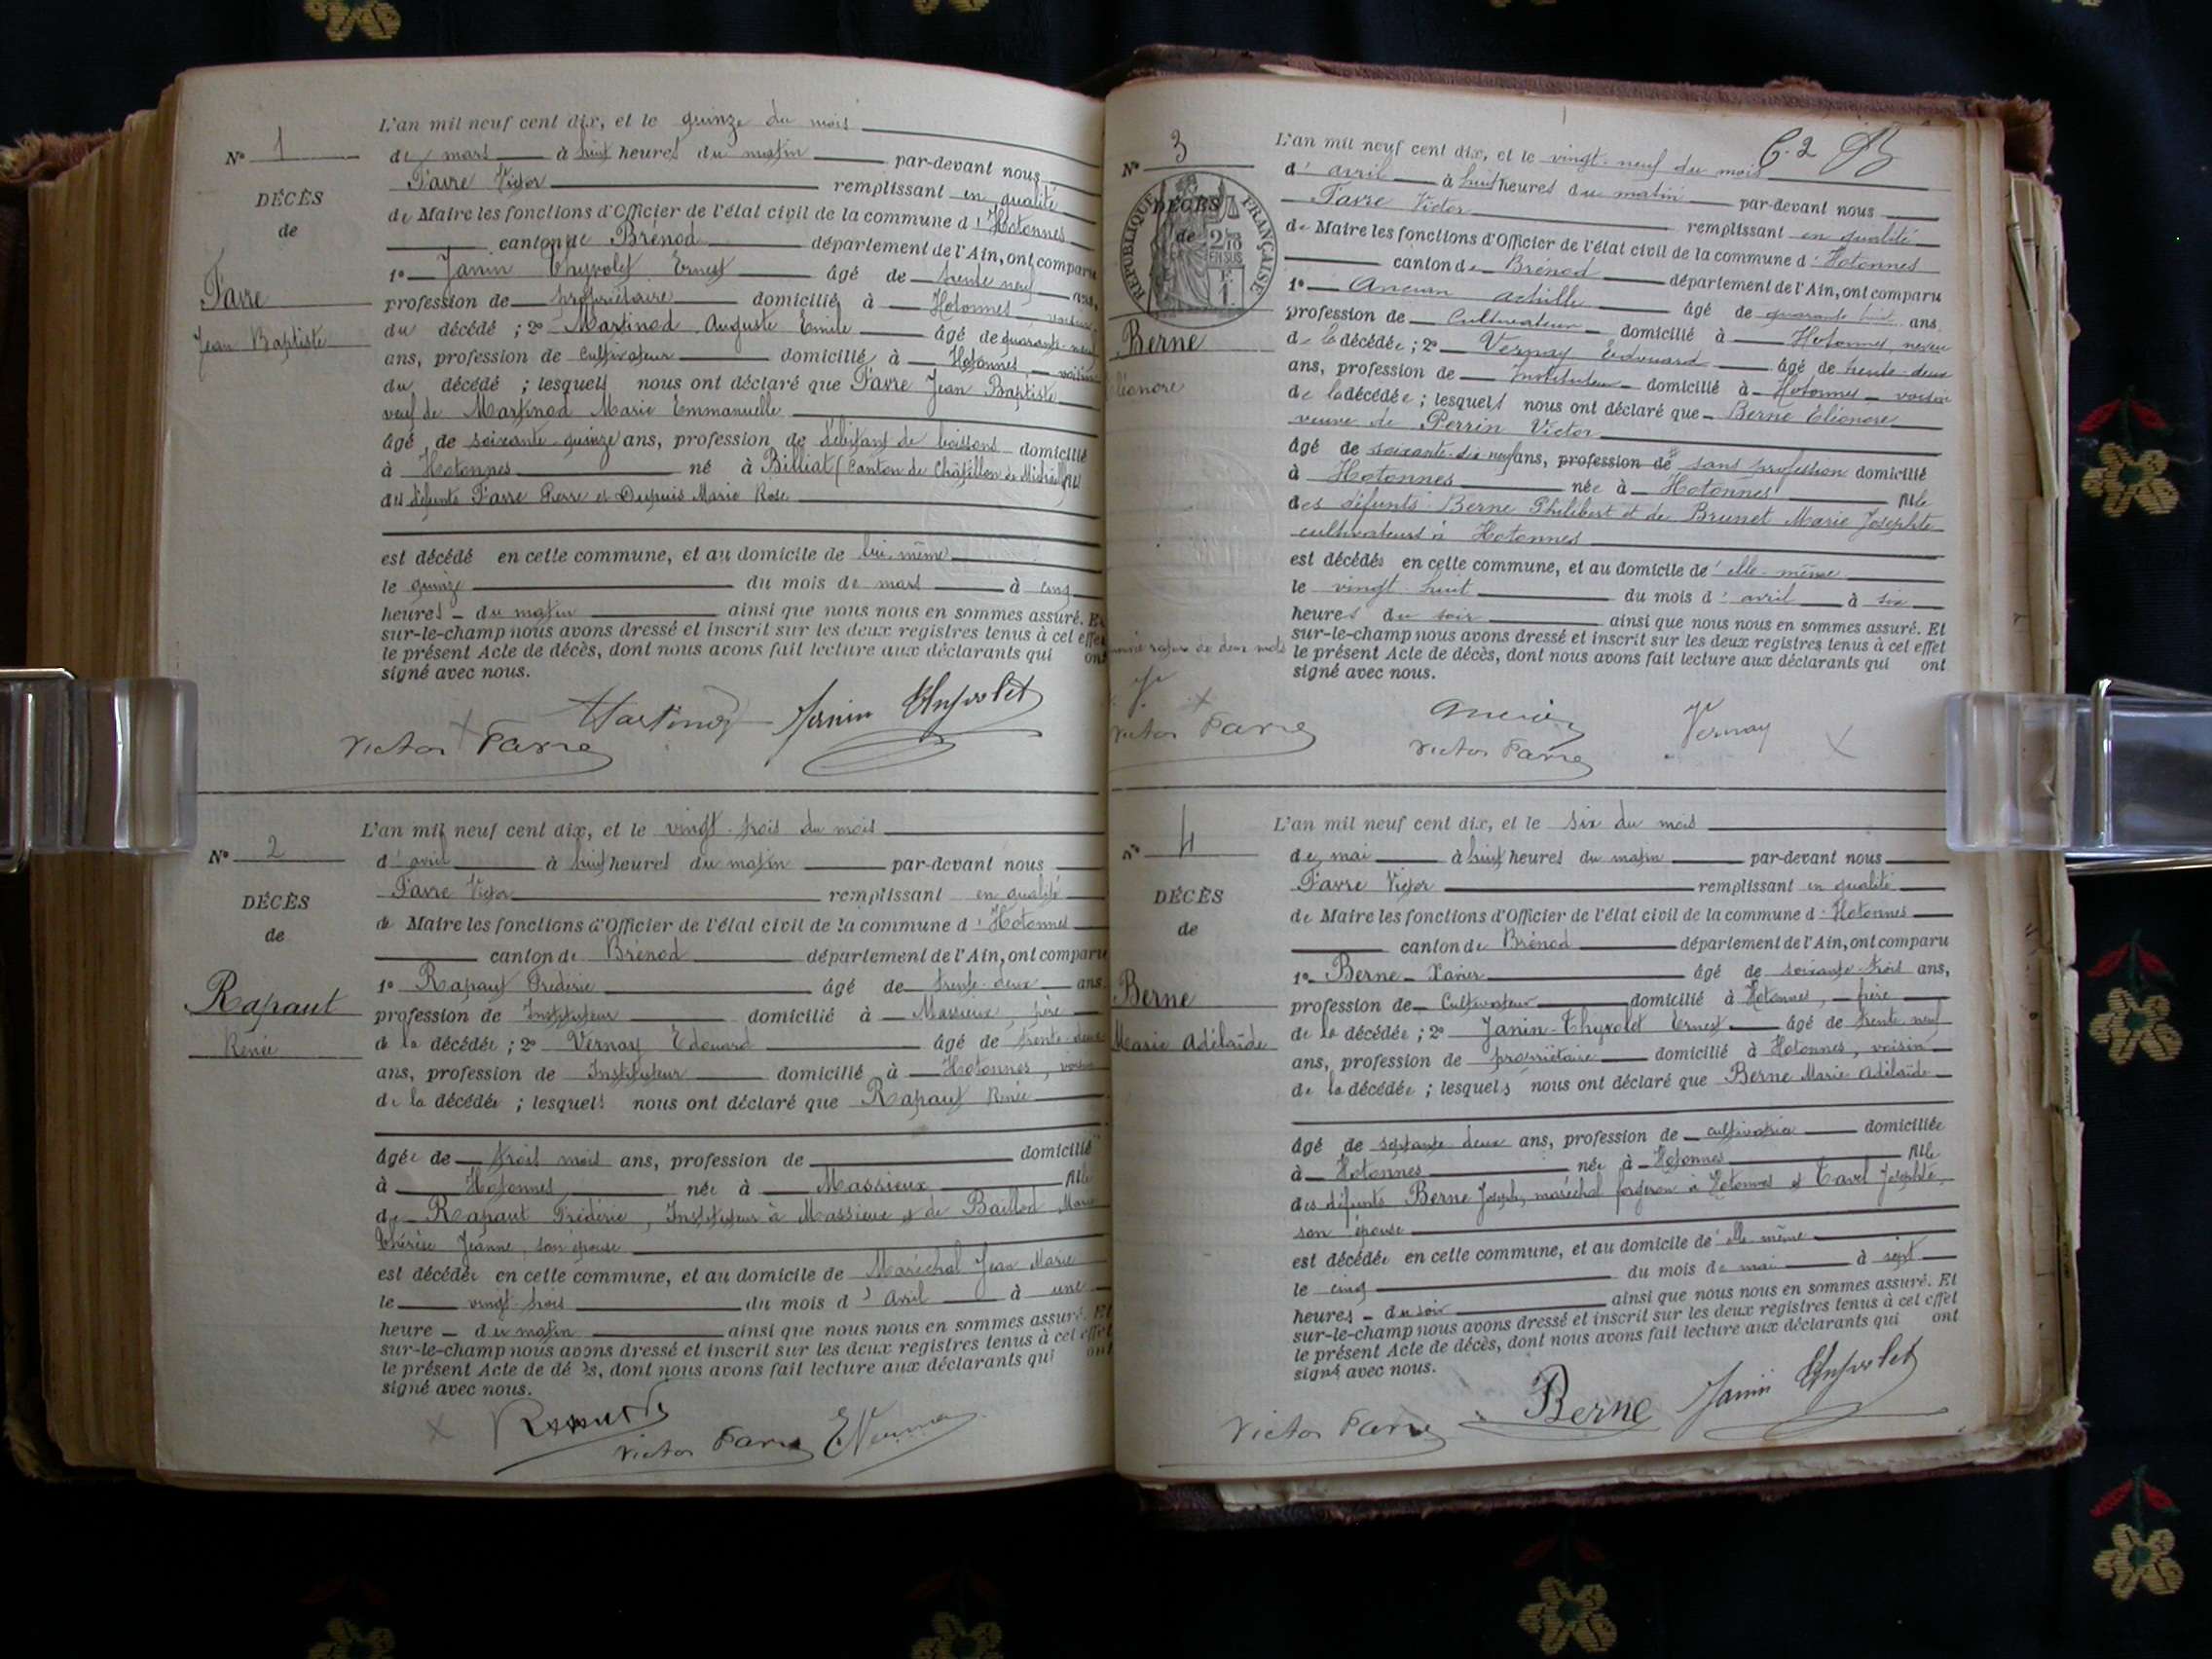 L'an mil neuf cent dix, et le quinze du mois
N° 1
de mars à huit heures du matin par-devant nous
Favre Victor remplissant en qualité
DÉCÈS
de Maire les fonctions d'Officier de l'état civil de la commune d'Hotonnes
de
canton de Brénod département de l'Ain, ont comparu
1° Janin Thyvolet Ernest âgé de trente neuf ans,
Favre
profession de propriétaire domicilié à Hotonnes
Jean Baptiste
du décédé ; 2° Martinod Auguste Emile âgé de quarante-neuf
ans, profession de cultivateur domicilié à Hotonnes, voisin
du décédé ; lesquels nous ont déclaré que Favre Jean Baptiste
veuf de Martinod Marie Emmanuelle
âgé de soixante-quinze ans, profession de débitant de boissons domicilié
à Hotonnes né à Billiat (Canton de Châtillon de Michaille) fils
des défunts Favre Pierre et Dupuis Marie Rose
est décédé en cette commune, et au domicile de lui-même
le quinze du mois de mars à cinq
heures du matin ainsi que nous nous en sommes assuré. Et
sur-le-champ nous avons dressé et inscrit sur les deux registres tenus à cet effet
le présent Acte de décès, dont nous avons fait lecture aux déclarants qui ont
signé avec nous.
Martinod Janin Thyvolet
Victor Favre
L'an mil neuf cent dix, et le vingt-trois du mois
N° 2
d'avril à huit heures du matin par-devant nous
Favre Victor remplissant en qualité
DÉCÈS
de Maire les fonctions d'Officier de l'état civil de la commune d'Hotonnes
de
canton de Brénod département de l'Ain, ont comparu
1° Rapaut Frédéric âgé de trente-deux ans
Rapaut
profession de Instituteur domicilié à Massieux, père
Renée
de la décédée ; 2° Vernay Edouard âgé de trente-deux
ans, profession de Instituteur domicilié à Hotonnes, voisin
de la décédée ; lesquels nous ont déclaré que Rapaut Renée
âgée de trois mois ans, profession de domicilié
à Hotonnes née à Massieux fille
de Rapaut Frédéric, Instituteur à Massieux et de Baillod Marie
Thérèse Jeanne, son épouse
est décédée en cette commune, et au domicile de Maréchal Jean Marie
le vingt-trois du mois d'avril à une
heure du matin ainsi que nous nous en sommes assuré. Et
sur-le-champ nous avons dressé et inscrit sur les deux registres tenus à cet effet
le présent Acte de décès, dont nous avons fait lecture aux déclarants qui ont
signé avec nous.
Victor Favre
C. 2
L'an mil neuf cent dix, et le vingt-neuf du mois
N° 3
d'avril à huit heures du matin par-devant nous
Favre Victor remplissant en qualité
RÉPUBLIQUE FRANÇAISE
DÉCÈS
de
2/10 EN SUS
de Maire les fonctions d'Officier de l'état civil de la commune d'Hotonnes
canton de Brénod département de l'Ain, ont comparu
1° Ancian Achille âgé de quarante huit ans
profession de Cultivateur domicilié à Hotonnes, neveu
Berne
de la décédée ; 2° Vernay Edouard âgé de trente-deux
ans, profession de Instituteur domicilié à Hotonnes voisin
léonore
de la décédée ; lesquels nous ont déclaré que Berne Eléonore
veuve de Perrin Victor
âgé de soixante-dix neuf ans, profession de sans profession domicilié
à Hotonnes née à Hotonnes fille
des défunts Berne Philibert et de Brunet Marie Josephte
cultivateurs à Hotonnes
est décédée en cette commune, et au domicile de elle-même
le vingt-huit du mois d'avril à six
heures du soir ainsi que nous nous en sommes assuré. Et
sur-le-champ nous avons dressé et inscrit sur les deux registres tenus à cet effet
de deux mots
le présent Acte de décès, dont nous avons fait lecture aux déclarants qui ont
signé avec nous.
Victor Favre
Ancian Vernay
Victor Favre
L'an mil neuf cent dix, et le six du mois
N° 4
de mai à huit heures du matin par-devant nous
Favre Victor remplissant en qualité
DÉCÈS
de Maire les fonctions d'Officier de l'état civil de la commune d'Hotonnes
de
canton de Brénod département de l'Ain, ont comparu
1° Berne Xavier âgé de soixante-trois ans,
Berne
profession de Cultivateur domicilié à Hotonnes, frère
Marie Adélaïde
de la décédée ; 2° Janin-Thyvolet Ernest âgé de trente neuf
ans, profession de propriétaire domicilié à Hotonnes, voisin
de la décédée ; lesquels nous ont déclaré que Berne Marie Adélaïde
âgé de septante deux ans, profession de cultivatrice domiciliée
à Hotonnes née à Hotonnes fille
des défunts Berne Joseph, maréchal forgeron à Hotonnes et Tavel Josephte,
son épouse
est décédée en cette commune, et au domicile de elle-même
le cinq du mois de mai à sept
heures du soir ainsi que nous nous en sommes assuré. Et
sur-le-champ nous avons dressé et inscrit sur les deux registres tenus à cet effet
le présent Acte de décès, dont nous avons fait lecture aux déclarants qui ont
signé avec nous.
Berne Janin Thyvolet
Victor Favre